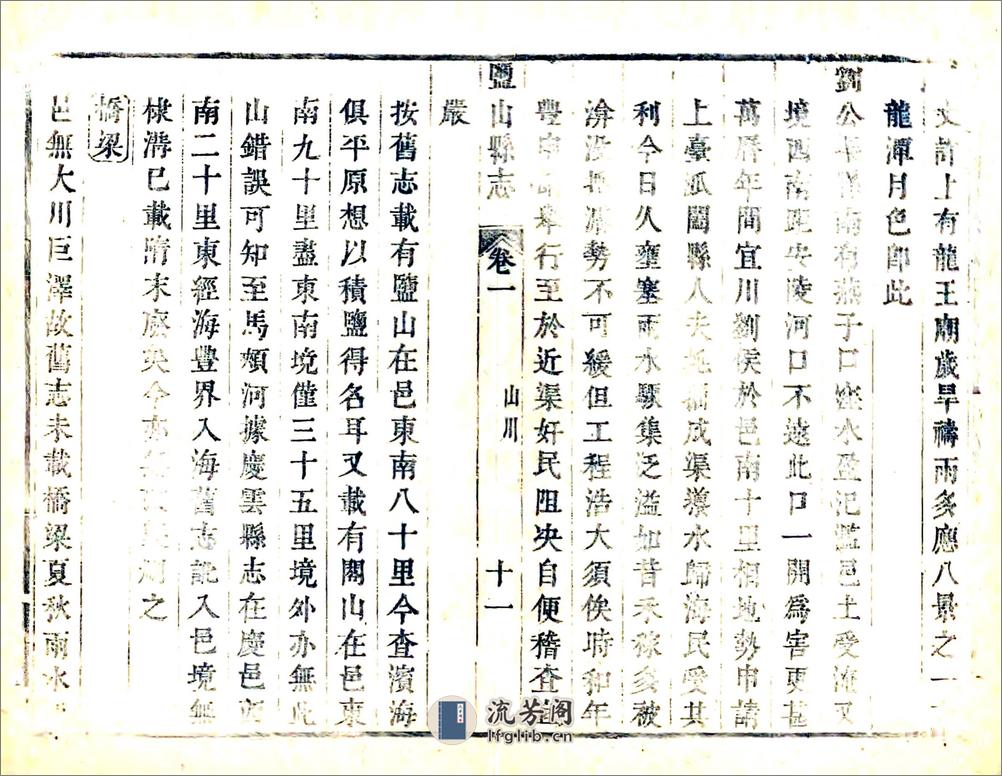 丈許上有龍王廟歲旱禱雨多應八景之一
龍潭月色即此
劉公
南有燕子口
水
汜濫邑土受
又
境西南距安陵河口不遠此口一開爲害更甚
萬曆年間宜川劉侯於邑南十里相地勢申請
上臺
闔縣人夫
成渠導水歸海民受其
利今日久壅塞雨水驟集泛溢如昔禾稼多被
渰没
勢不可緩但工程浩大須俟時和年
豐申
舉行至於近渠奸民阻決自便稽查
鹽山縣志
卷一
山川
十一
嚴
按舊志載有鹽山在邑東南八十里今查濱海
俱平原想以積鹽得名耳又載有閣山在邑東
南九十里盡東南境僅三十五里境外亦無此
山錯誤可知至馬頰河據慶雲縣志在慶邑
南二十里東經海豐界入海舊志訛入邑境無
棣溝已載隋末廢矣今亦
之
橋梁
邑無大川巨澤故舊志未載橋梁夏秋雨水
流芳阁
lfglib.cn